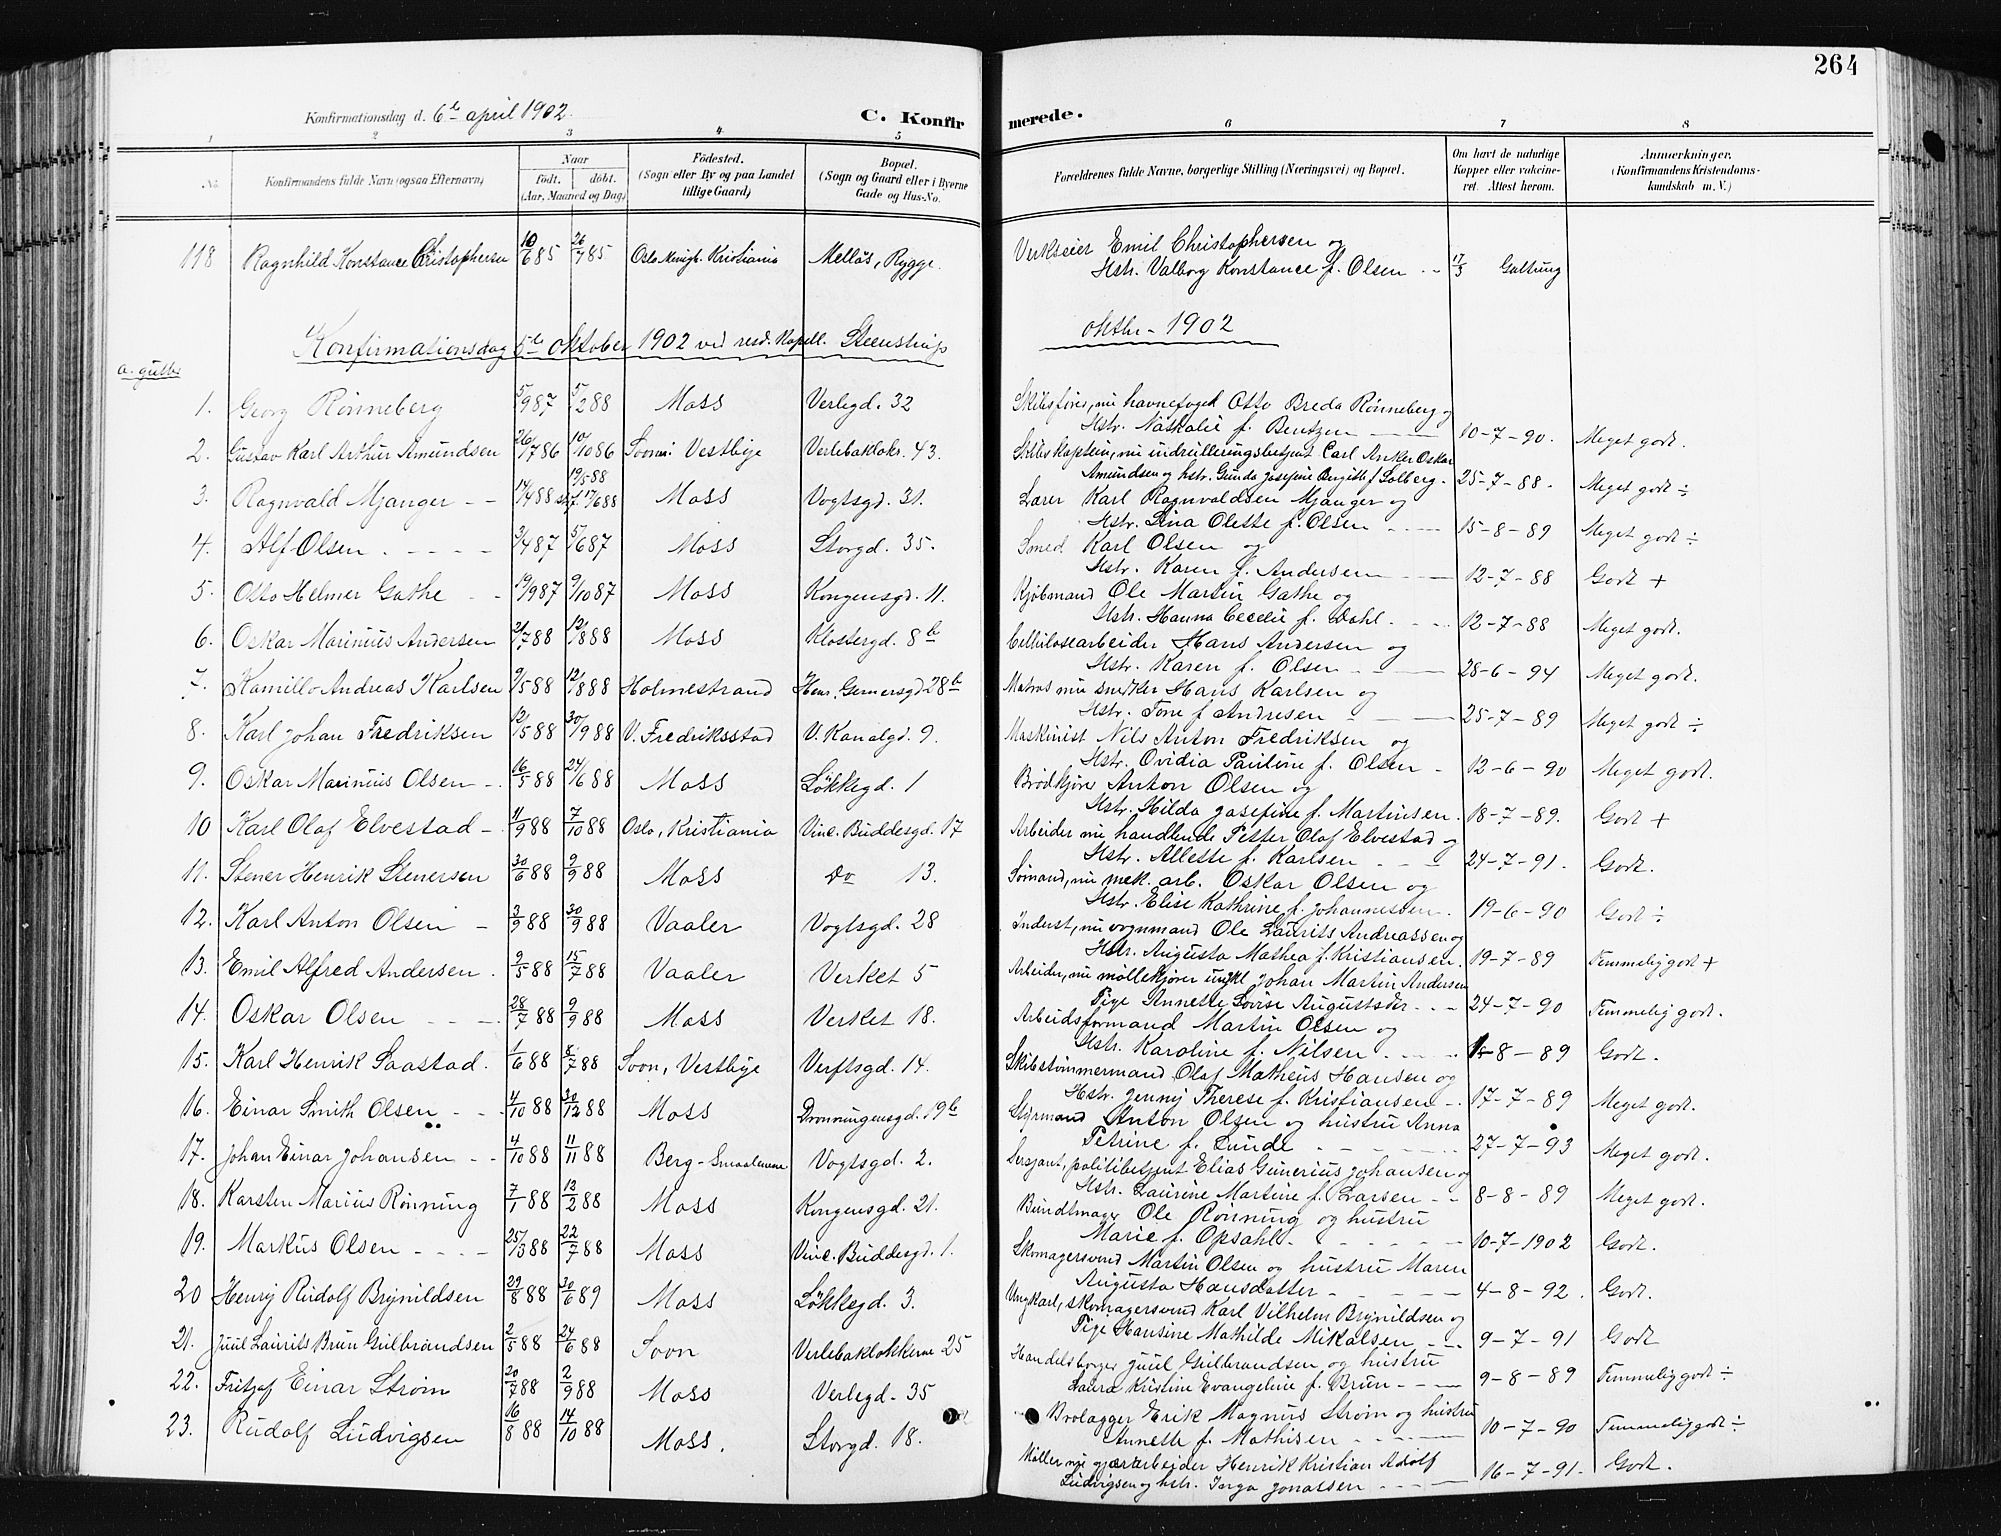 264
Konfirmationsdag d. 6te april 1902.
C. Konfir
merede.
1 2 3 4 5 6 7 8
No.
Konfirmandens fulde Navn (ogsaa Efternavn)
Naar
født. døbt.
(Aar, Maaned og Dag)
Födested.
(Sogn eller By og paa Landet
tillige Gaard)
Bopæl.
(Sogn og Gaard eller i Byerne
Gade og Hus-No.
Forældrenes fulde Navne, borgerlige Stilling (Næringsvei) og Bopæl.
Om havt de naturlige
Kopper eller vakcine-
ret. Attest herom.
Anmærkninger.
(Konfirmandens Kristendoms-
kundskab m. V.)
118 Ragnhild Konstance Christophersen 10/6 85 26/7 85 Oslo Menigh. Kristiania Mellös, Rygge. Verkseier Emil Christophersen og
Hstr. Valborg Konstance f. Olsen 17/3 Galtung
Konfirmationsdag 5te oktober 1902 ved resd. Kapell. Steenstrup
oktbr - 1902
a. gutter
1. Georg Rønneberg 5/9 87 5/2 88 Moss Verlegd. 32 Skibsfører, nu havnefoged Otto Breda Rønneberg og
Hstr. Nathalie f. Bentzen 10-7-90. Meget godt.
2. Gustav Karl Arthur Amundsen 26/7 86 10/10 86 Soon: Vestbye Verlebakløkk. 43. Skibskaptein, nu indrulleringsbetjent Carl Anker Oskar
Amundsen og hstr. Gunda Josefine Bergitte f. Solberg. 25-7-88. Meget godt ÷
3. Ragnvald Mjanger 14/4 88 19/5 88 17/6 88 Moss Vogtsgd. 31. Lærer Karl Ragnvaldsen Mjanger og
Hstr. Lina Olette f. Olsen 15-8-89 Meget godt ÷
4. Alf Olsen 3/4 87 5/6 87 Moss Storgd. 35. Smed Karl Olsen og
Hstr. Karen f. Andersen 12-7-88 Godt +
5. Otto Helmer Gathe 19/9 87 9/10 87 Moss Kongensgd. 11. Kjøbmand Ole Martin Gathe og
Hstr. Hanna Cecelie f. Dahl 12-7-88 Meget godt.
6. Oskar Marinius Andersen 21/7 88 12/8 88 Moss Klostergd. 8b Cellulosearbeider Hans Andersen og
Hstr. Karen f. Olsen 28-6-94 Meget godt.
7. Kamillo Andreas Karlsen 9/5 88 12/8 88 Holmestrand Henr. Gernersgd 28b Matros nu snedker Hans Karlsen og
Hstr. Tone f Andresen 25-7-89 Meget godt ÷
8. Karl Johan Fredriksen 12/5 88 30/9 88 V. Fredriksstad V. Kanalgd. 9. Maskinist Nils Anton Fredriksen og
Hstr. Ovidia Pauline f. Olsen 12-6-90 Meget godt.
9. Oskar Marinius Olsen 16/5 88 24/6 88 Moss Løkkegd. 1 Brødkjører Anton Olsen og
Hstr. Hilda Josefine f. Martinsen. 18-7-89. Godt +
10 Karl Olaf Elvestad 11/9 88 7/10 88 Oslo, Kristiania Vinc. Buddesgd. 17 Arbeider nu handlende Petter Olaf Elvestad og
Hstr. Allette f. Karlsen 24-7-91. Godt.
11. Stener Henrik Stenersen 30/6 88 9/9 88 Moss Do 13. Sømand, nu mek. arb. Oskar Olsen og
Hstr. Elise Kathrine f. Johannessen. 19-6-90 Godt ÷
12. Karl Anton Olsen 3/9 88 30/9 88 Vaaler Vogtsgd. 28 Inderst, nu vognmand Ole Laurits Andreassen og
Hstr. Augusta Mathea f. Kristiansen. 19-7-89 Temmelig godt +
13. Emil Alfred Andersen 9/5 88 15/7 88 Vaaler Verket 5 Arbeider, nu møllekjører ungkl Johan Martin Andersen
Pige Annette Lovise Augustsdtr 24-7-90 Temmelig godt.
14. Oskar Olsen 28/7 88 9/9 88 Moss Verket 18. Arbeidsformand Martin Olsen og
Hstr. Karoline f. Nilsen 8-89 Godt.
15. Karl Henrik Saastad. 1/6 88 8/7 88 Soon, Vestbye Verftsgd. 14. Skibstømmermand Olaf Matheus Hansen og
Hstr. Jenny Therese f. Kristiansen 17-7-89 Meget godt.
16. Einar Smith Olsen 4/10 88 30/12 88 Moss Dronningensgd. 19b Styrmand Anton Olsen og hustru Anna
Petrine f. Lunde 27-7-93 Meget godt.
17. Johan Einar Johansen 4/10 88 11/11 88 Berg-Smaalenene Vogtsgd. 2. Sersjant, politibetjent Elias Gunerius Johansen og
Hstr. Laurine Martine f. Larsen 8-8-89 Meget godt.
18. Karsten Marius Rønning 7/1 88 12/2 88 Moss Kongensgd. 21. Bundtmager Ole Rønning og hustru
Marie f. Opsahl 10-7-1902 Godt.
19. Markus Olsen 25/3 88 22/7 88 Moss Vinc. Buddesgd. 1. Skomagersvend Martin Olsen og hustru Maren
Augusta Hansdatter 4-8-92. Godt.
20 Henry Rudolf Brynildsen 29/8 88 30/6 89 Moss Løkkegd. 3. Ungkarl, skomagersvend Karl Vilhelm Brynildsen og
Pige Hansine Mathilde Mikalsen 9-7-91 Godt
21. Juul Laurits Brun Gulbrandsen 2/5 88 24/6 88 Soon Verlebakløkkerne 25 Handelsborger Juul Gulbrandsen og hustru
Laura Kristine Evangeline f. Brun 9-8-89 Temmelig godt ÷
22. Fritjof Einar Strøm 20/7 88 2/9 88 Moss Verlegd. 35 Brolægger Erik Magnus Strøm og hustru
Annette f. Mathisen 10-7-90 Temmelig godt ÷
23. Rudolf Ludvigsen 16/8 88 14/10 88 Moss. Storgd. 18. Møller nu gjærarbeider Henrik Kristian Adolf
Ludvigsen og hstr. Inga Jonassen 16-7-91. Godt.